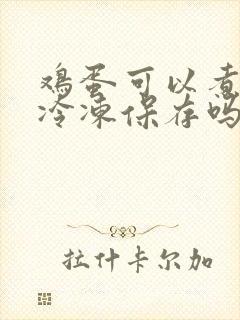 鸡蛋可以煮
冷冻保存吗
拉什卡尔加